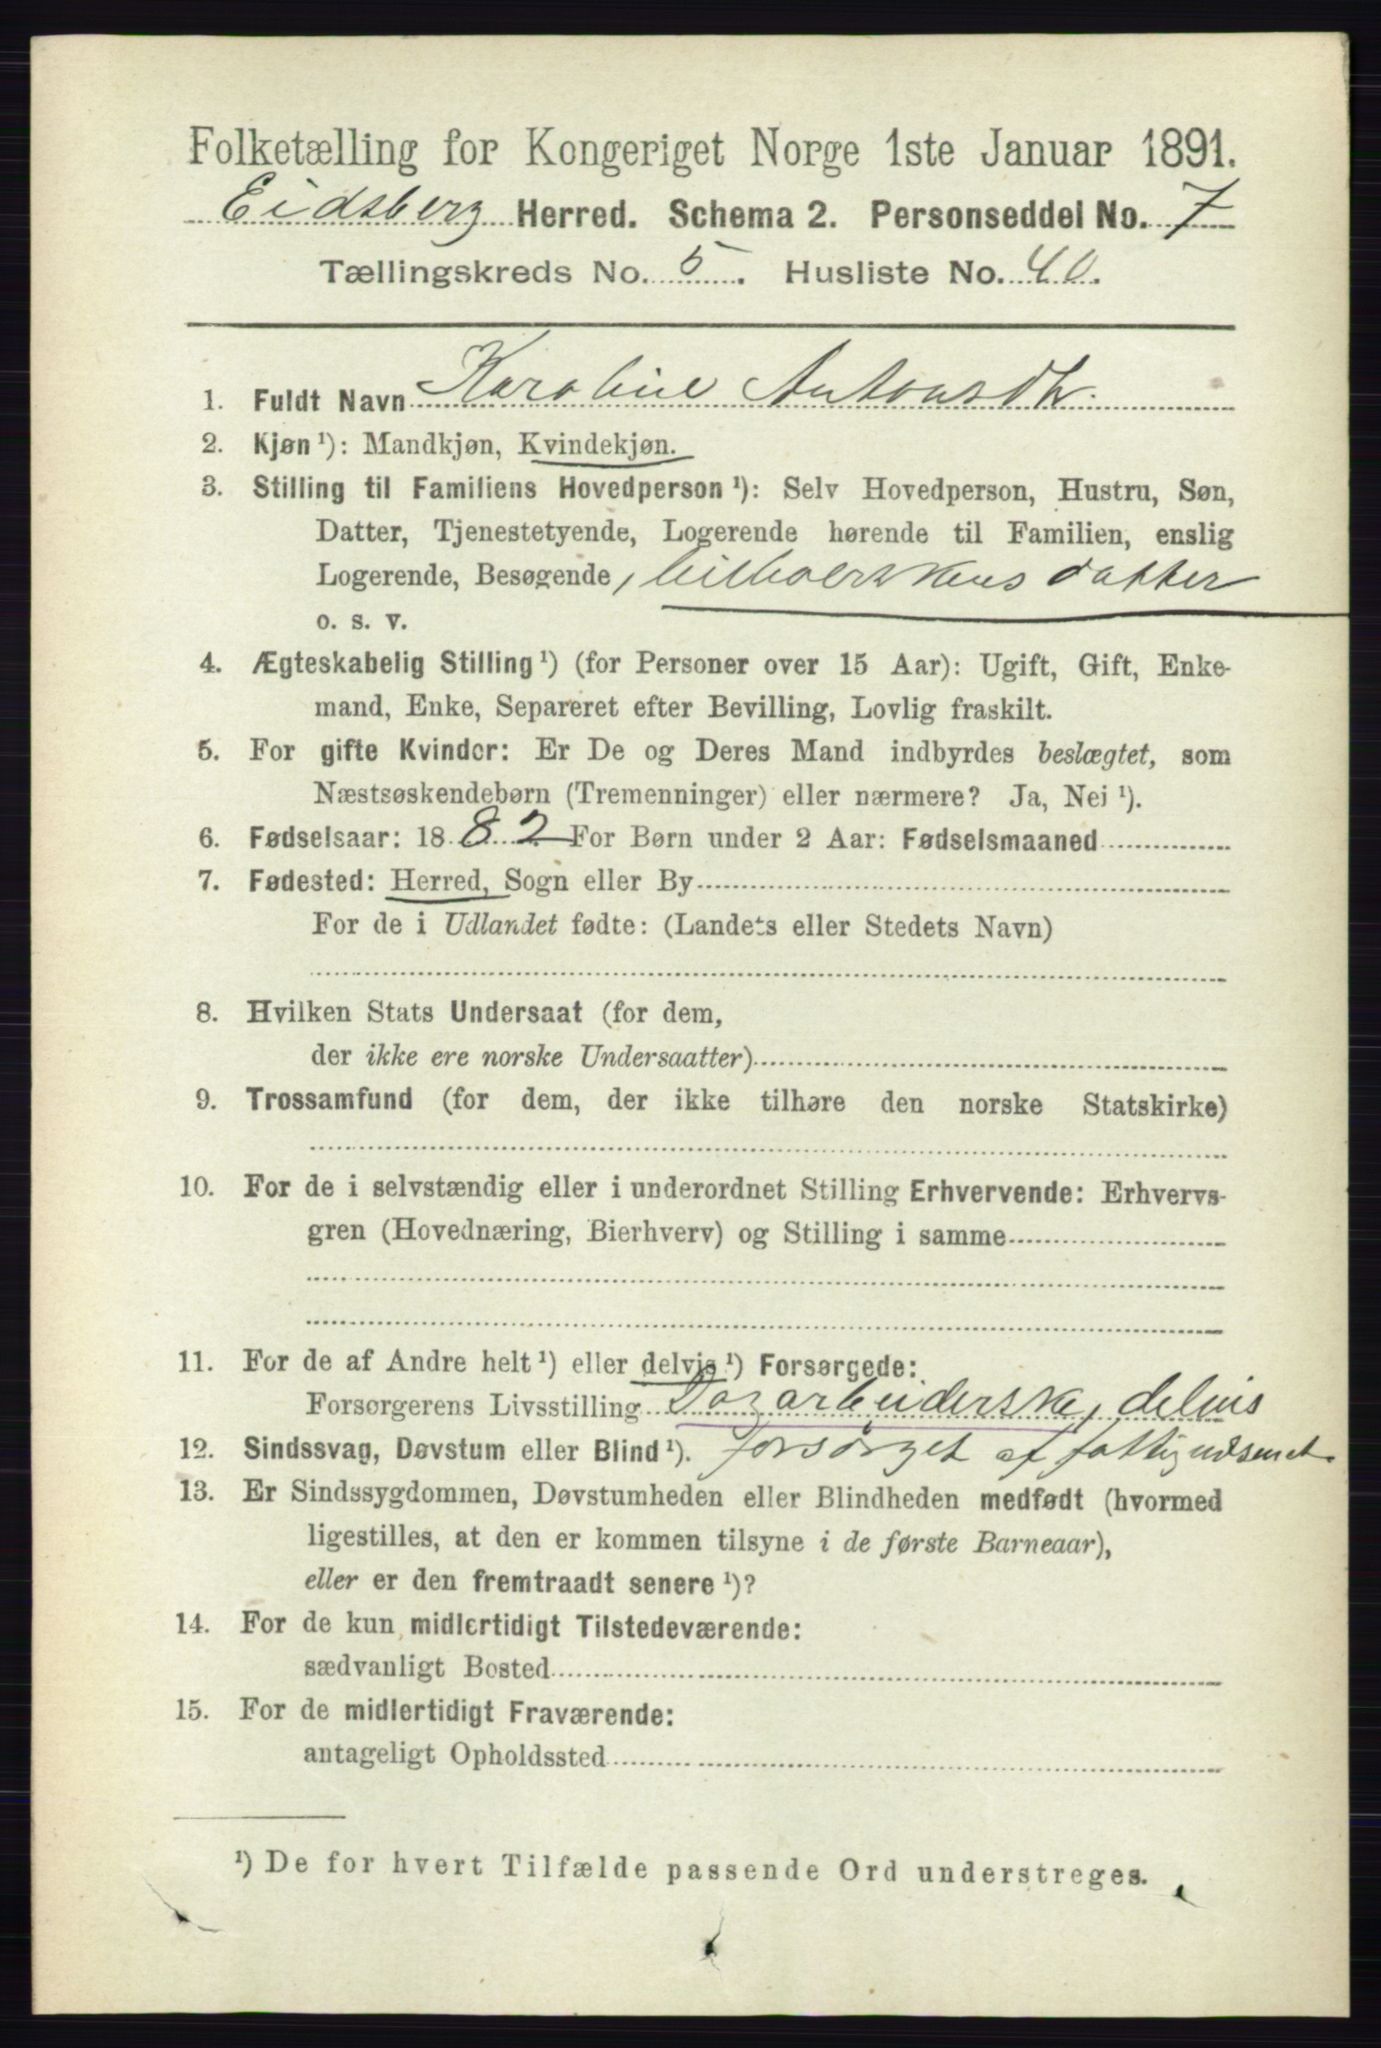 Folketælling for Kongeriget Norge 1ste Januar 1891.
Eidsberg Herred. Schema 2. Personseddel No. 7
Tællingskreds No. 5. Husliste No. 40.
1. Fuldt Navn Karoline Antonsdtr.
2. Kjøn ¹): Mandkjøn, Kvindekjøn.
3. Stilling til Familiens Hovedperson ¹): Selv Hovedperson, Hustru, Søn,
Datter, Tjenestetyende, Logerende hørende til Familien, enslig
Logerende, Besøgende, datter
o. s. v.
4. Ægteskabelig Stilling ¹) (for Personer over 15 Aar): Ugift, Gift, Enke-
mand, Enke, Separeret efter Bevilling, Lovlig fraskilt.
5. For gifte Kvinder: Er De og Deres Mand indbyrdes beslægtet, som
Næstsøskendebørn (Tremenninger) eller nærmere? Ja, Nei ¹).
6. Fødselsaar: 1882 For Børn under 2 Aar: Fødselsmaaned
7. Fødested: Herred, Sogn eller By
For de i Udlandet fødte: (Landets eller Stedets Navn)
8. Hvilken Stats Undersaat (for dem,
der ikke ere norske Undersaatter)
9. Trossamfund (for dem, der ikke tilhøre den norske Statskirke)
10. For de i selvstændig eller i underordnet Stilling Erhvervende: Erhvervs-
gren (Hovednæring, Bierhverv) og Stilling i samme
11. For de af Andre helt ¹) eller delvis ¹) Forsørgede:
Forsørgerens Livsstilling Dagarbeiderske, delvis
12. Sindssvag, Døvstum eller Blind ¹). forsørget af fattigvæsenet.
13. Er Sindssygdommen, Døvstumheden eller Blindheden medfødt (hvormed
ligestilles, at den er kommen tilsyne i de første Barneaar),
eller er den fremtraadt senere ¹)?
14. For de kun midlertidigt Tilstedeværende:
sædvanligt Bosted
15. For de midlertidigt Fraværende:
antageligt Opholdssted
¹) De for hvert Tilfælde passende Ord understreges.